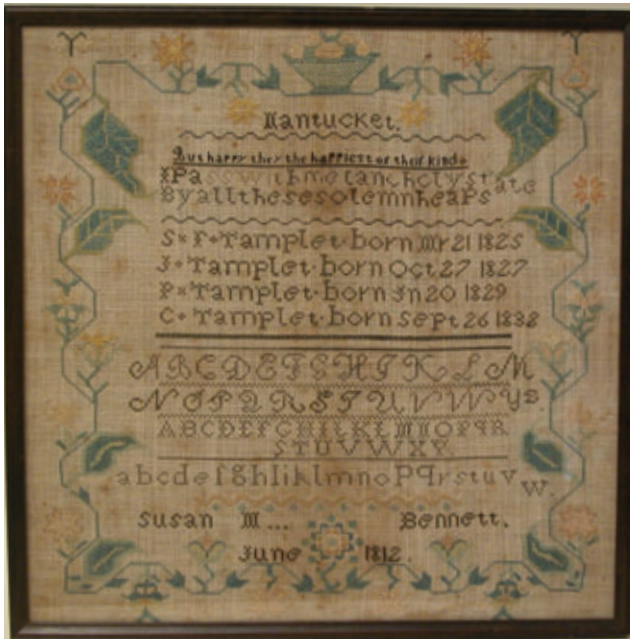 Nantucket.
But happy they the happiest of their kind
Pass with melancholy state
By all these solemn heaps
S F Tamplet born Mr 21 1825
J Tamplet born Oct 27 1827
P Tamplet born Jn 20 1829
C Tamplet born Sept 26 1838
A B C D E F G H I K L M
N O P Q R S T U V W Y
A B C D E F G H I K L M N O P Q R
S T U V W X Y
a b c d e f g h i k l m n o p q r s t u v w.
Susan M... Bennett.
June 1812.